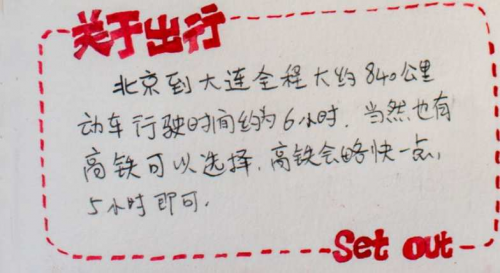 关于出行
北京到大连全程大约840公里
动车行驶时间约为6小时.当然也有
高铁可以选择.高铁会略快一点,
5小时即可.
Set out